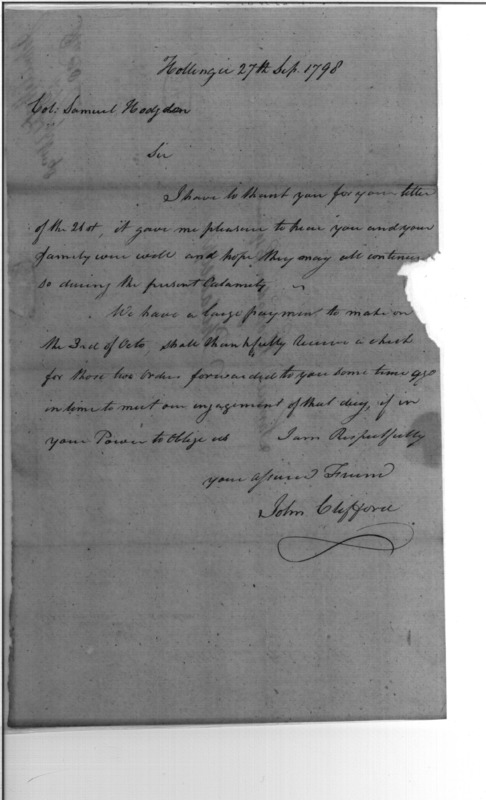 27th Sep. 1798
Col: Samuel Hodgdon
Sir
I have to thank you for your letter
of the 21st, it gave me pleasure to hear you and your
family were well and hope they may all continue
so during the present Calamity
We have a large payment to make on
the 3rd of Octo, shall thankfully receive a check
for those two orders forwarded to you some time ago
in time to meet our engagement of that day, if in
your Power to Oblige us I am Respectfully
your assured Friend
John Clifford